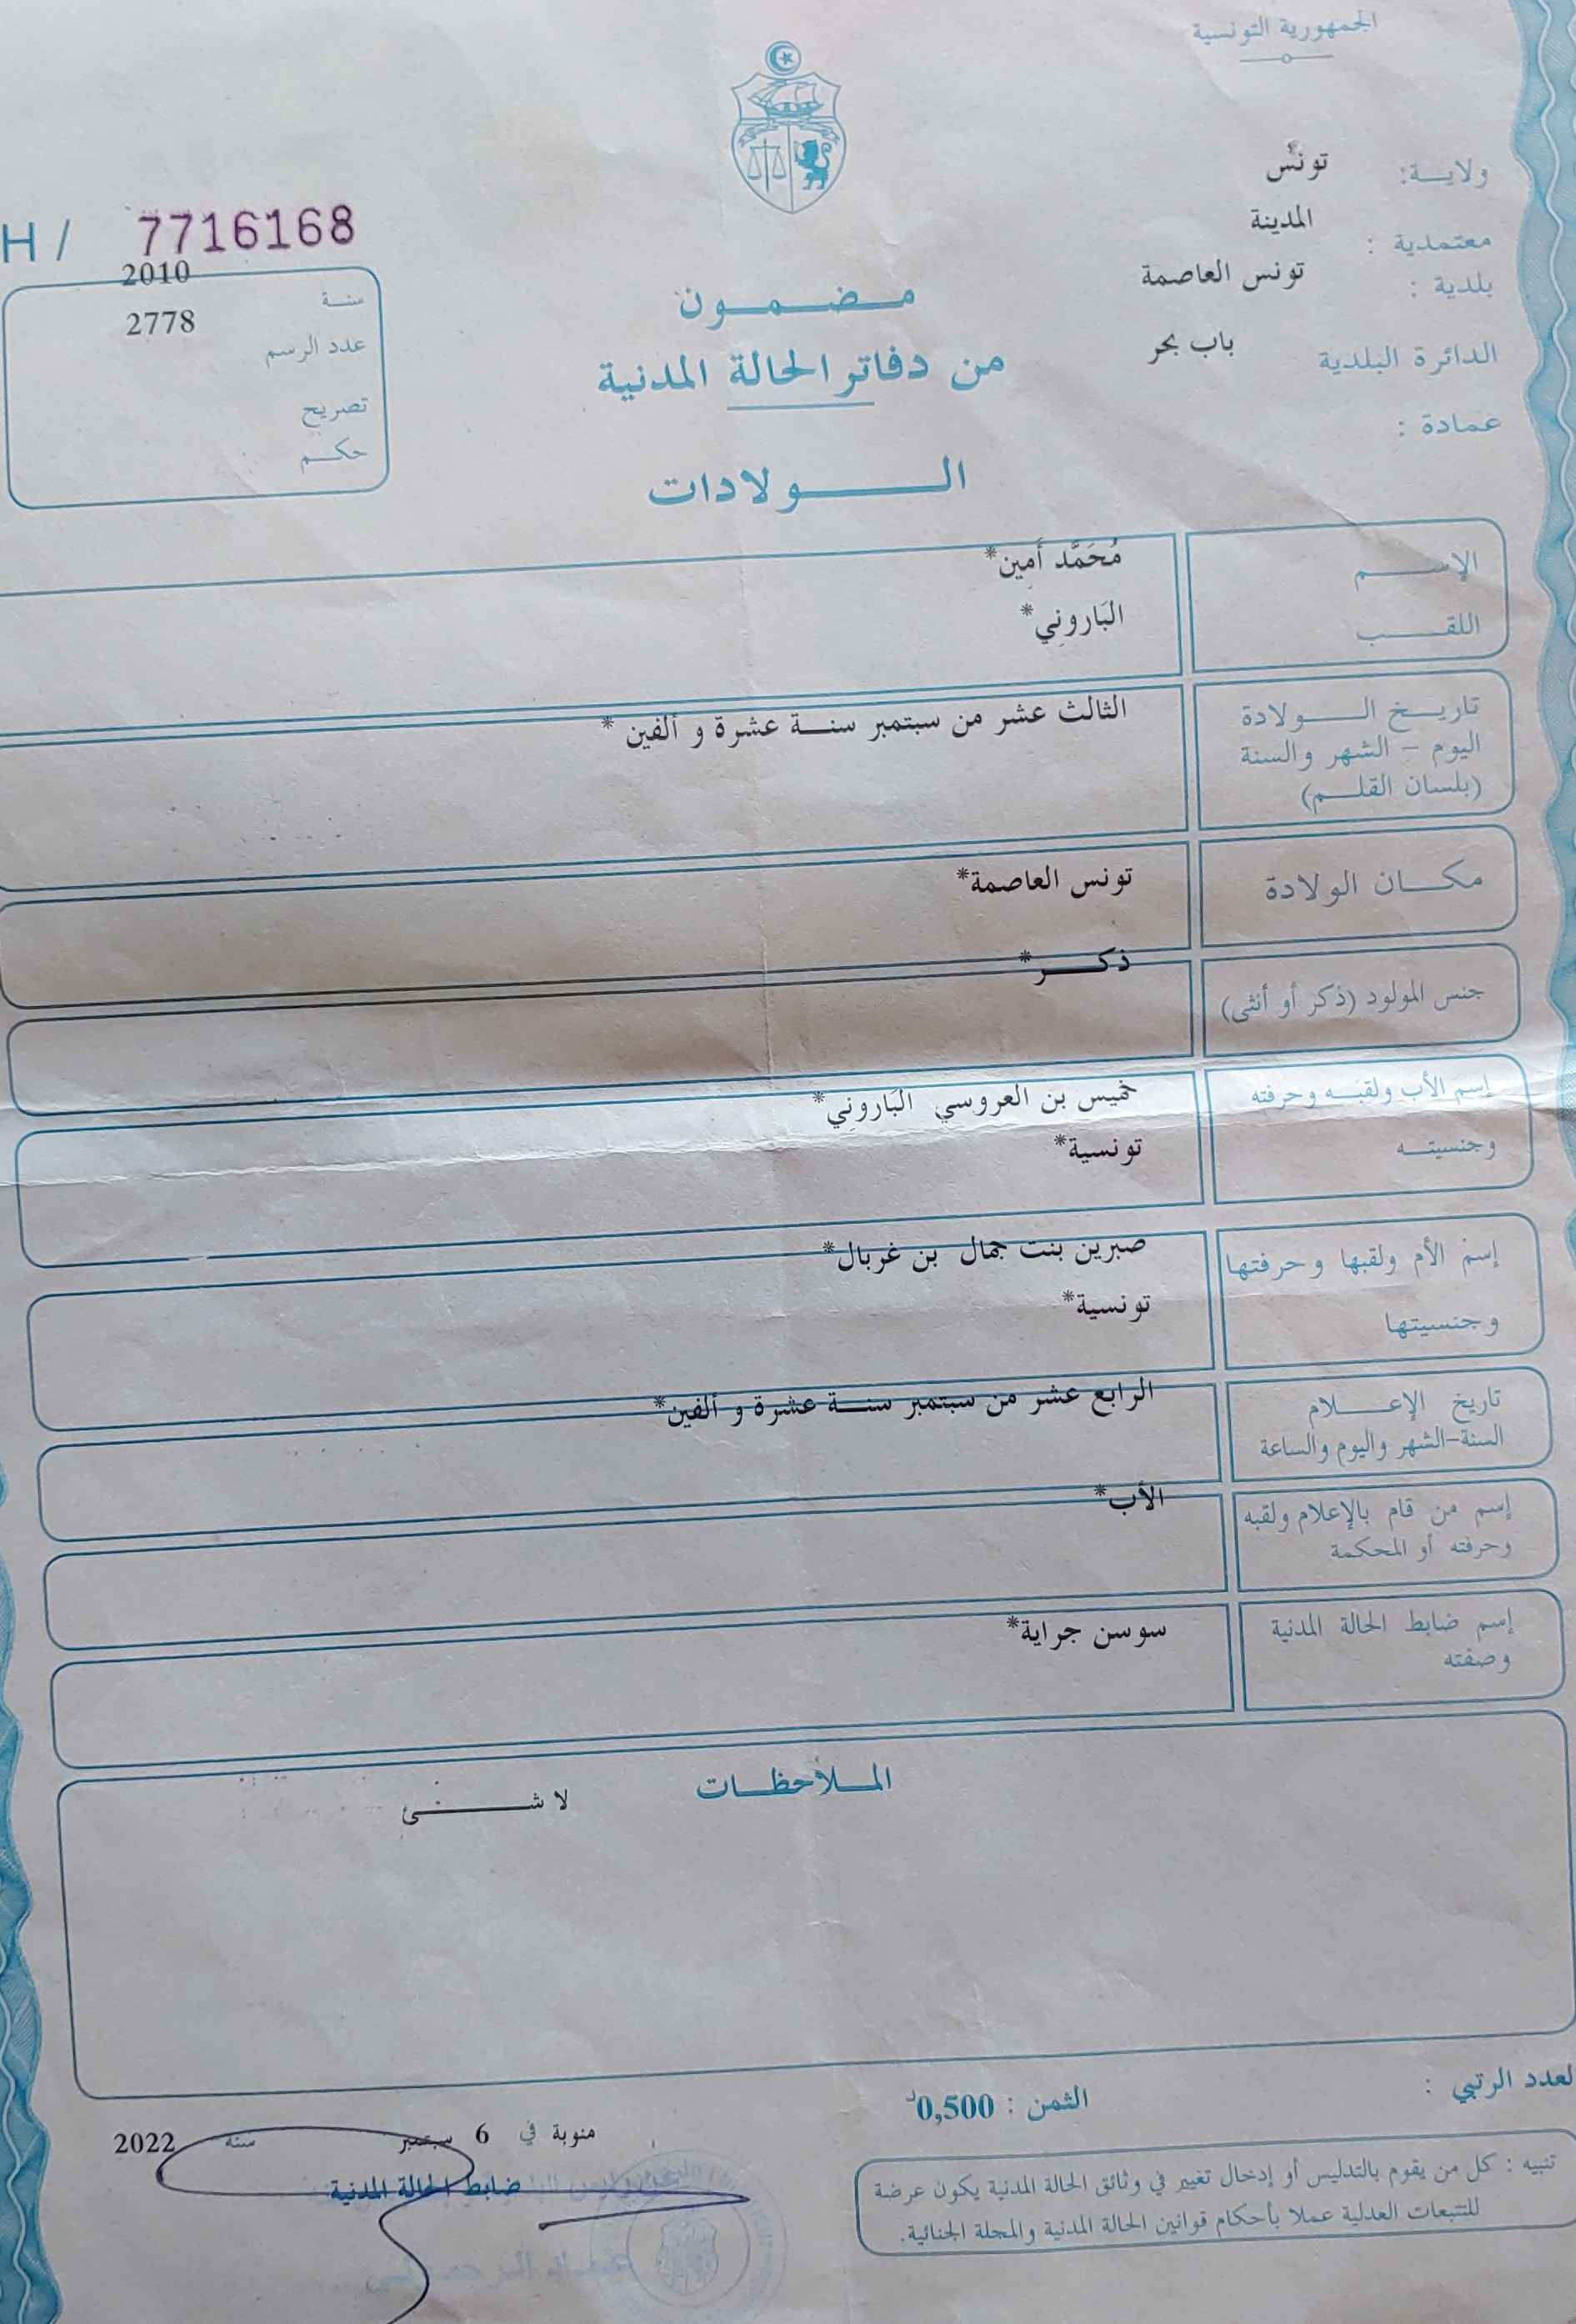 الجمهورية التونسية
ولايـــة: تونس
معتمدية : المدينة
بلدية : تونس العاصمة
الدائرة البلدية باب بحر
عمادة :
H / 7716168
سنـة 2010
عدد الرسم 2778
تصريح
حكـــم
مـــضـــمـــون
من دفاتر الحالة المدنية
الـــــولادات
الإســـــم مُحَمَّد أَمِين*
اللقـــــب البَارونِي*
تاريـــخ الـــــولادة الثالث عشر من سبتمبر سنـــة عشرة و ألفين *
اليوم - الشهر والسنة
(بلسان القلـــم)
مكـــان الولادة تونس العاصمة*
جنس المولود (ذكر أو أنثى) ذكـــــر*
إسم الأب ولقبـــه وحرفته خميس بن العروسي البَارونِي*
وجنسيتـــه تونسية*
إسم الأم ولقبها وحرفتها صبرين بنت جمال بن غربال*
وجنسيتها تونسية*
تاريخ الإعـــــلام الرابع عشر من سبتمبر سنـــة عشرة و ألفين*
السنة-الشهر واليوم والساعة
إسم من قام بالإعلام ولقبه الأب*
وحرفته أو المحكمة
إسم ضابط الحالة المدنية سوسن جراية*
وصفته
المـــلاحظـــات
لا شـــــــئ
لعدد الرتبي :
الثمن : 0,500د
منوبة في 6 سبتمبر سنة 2022
ضابط الحالة المدنية
تنبيه : كل من يقوم بالتدليس أو إدخال تغيير في وثائق الحالة المدنية يكون عرضة
للتتبعات العدلية عملا بأحكام قوانين الحالة المدنية والمجلة الجنائية.